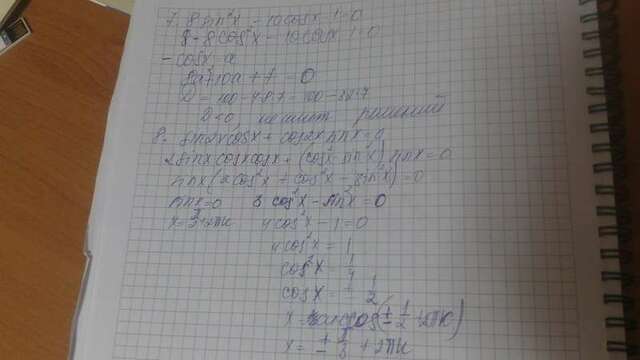 7. 8 sin²x - 10 cosx - 1 = 0
8 - 8 cos²x - 10 cosx - 1 = 0
- cosx = a
8a² + 10a + 7 = 0
D = 100 - 4·8·7 = 100 -
D < 0, не имеет решений
8. sin2x cosx + cos2x sinx = 0
2 sinx cosx cosx + (cos²x - sin²x) sinx = 0
sinx (2 cos²x + cos²x - sin²x) = 0
sinx = 0 3 cos²x - sin²x = 0
x = 2πк 4 cos²x - 1 = 0
4 cos²x = 1
cos²x = 1/4
cosx = ± 1/2
x = arccos(± 1/2 + 2πк)
x = ± π/3 + 2πк